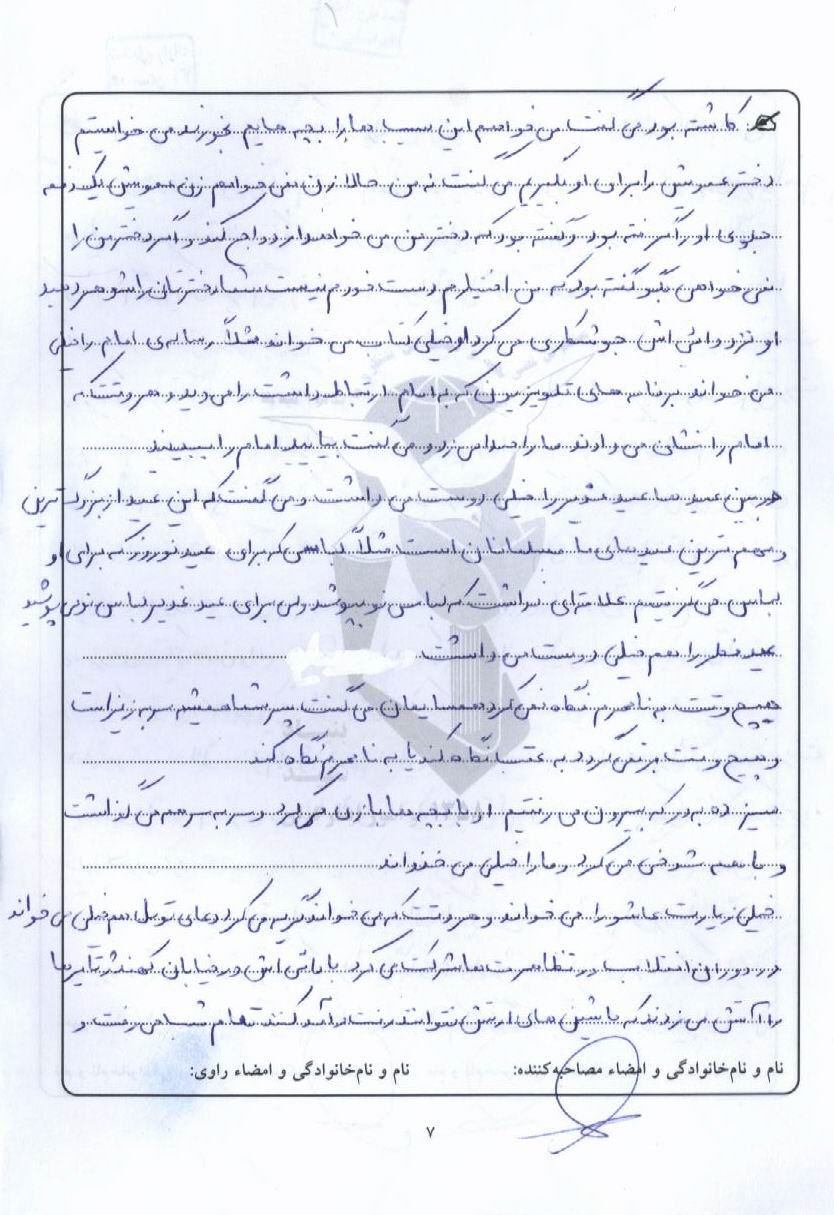 کاشته بود می گفت من خواهم این سیب ها را بچه هایم بخورند می خواستیم
دختر عمویش را برای او بگیریم می گفت نه من حالا زن نمی خواهم زن عمویش یک دفعه
جلوی او را گرفته بود و گفته بود که دختر من می خواهد ازدواج کند و اگر دختر من را
نمی خواهی بگو گفته بود که من اختیارم دست خودم نیست شما دخترتان را شوهر دهید
او نزد دائی اش جوشکاری می کرد او خیلی کتاب می خواند مثلاً رساله ی امام را خیلی
می خواند برنامه های تلویزیون که به امام ارتباط داشت را می دید و هر وقت که
امام را نشان می دادند ما را صدا می زد و می گفت بیایید امام را ببینید
در بین عید ها عید غدیر را خیلی دوست می داشت و می گفت که این عید از بزرگ ترین
و مهم ترین عیدهای ما مسلمانان است مثلاً لباسی که برای عید نوروز که برای او
لباس می گرفتیم علاقه ای نداشت که لباس نو بپوشد ولی برای عید غدیر لباس نو می پوشید
عید فطر را هم خیلی دوست می داشت
هیچ وقت به نامحرم نگاه نمی کرد همسایمان می گفت پسر شما همیشه سر به زیر است
و هیچ وقت بر نمی گردد به عقب نگاه کند یا به نامحرم نگاه کند
سیزده به در که بیرون می رفتیم او با بچه ها بازی می کرد و سر به سر هم می گذاشت
و با همه شوخی می کرد و ما را خیلی می خنداند
خیلی زیارت عاشورا می خواند و هر وقت که می خواند گریه می کرد دعای توسل هم خیلی می خواند
در دوران انقلاب در تظاهرت ها شرکت می کرد با دائی اش در خیابان کهندژ تایرها
را آتش می زدند که ماشین های ارتش نتوانند رفت و آمد کنند تمام شب می رفت و
نام و نام‌خانوادگی و امضاء مصاحبه‌کننده:
نام و نام‌خانوادگی و امضاء راوی:
۷